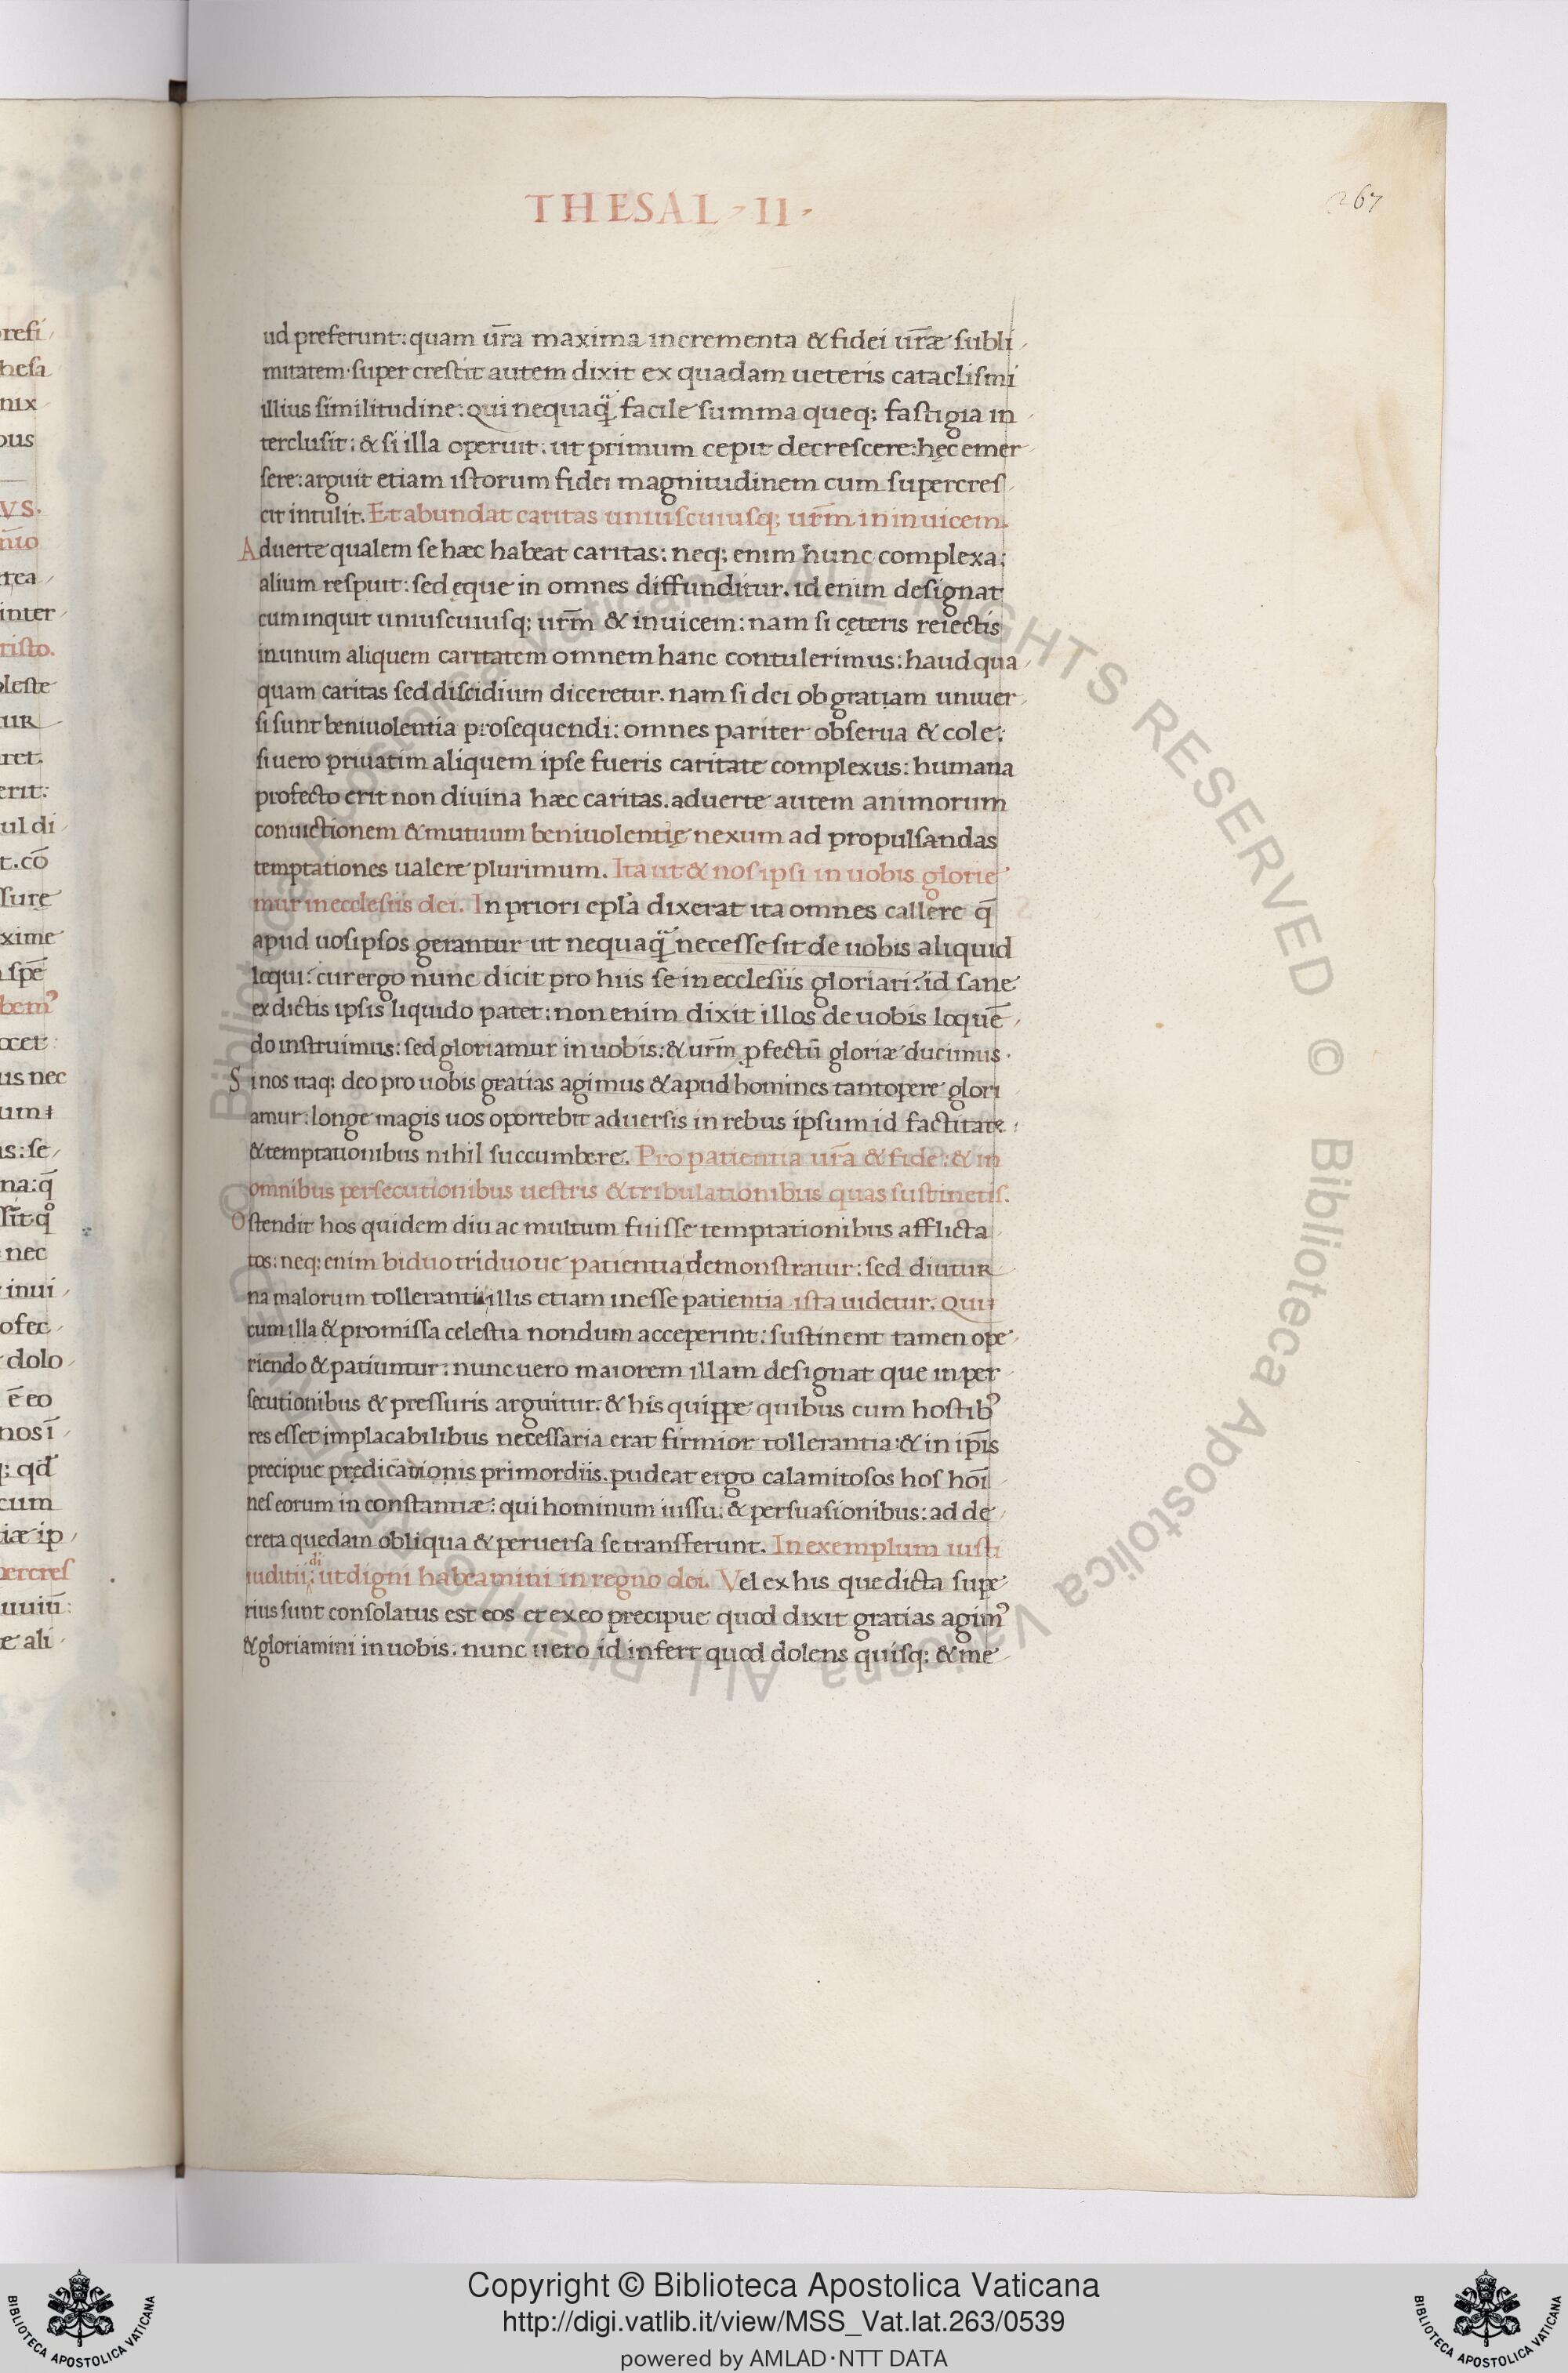 THESAL · II ·
267
ud preferunt: quam ur̄a maxima incrementa & fidei ur̄æ subli
mitatem · super crescit autem dixit ex quadam ueteris cataclismi
illius similitudine: qui nequaq̄ facile summa queq; fastigia in
terclusit: & si illa operuit: ut primum cepit decrescere: hęc emer
sere: arguit etiam istorum fidei magnitudinem cum supercres
cit intulit. Et abundat caritas uniuscuiusq; ur̄m in inuicem.
Aduerte qualem se hæc habeat caritas: neq; enim hunc complexa:
alium respuit: sed ęque in omnes diffunditur. id enim designat
cum inquit uniuscuiusq; ur̄m & inuicem: nam si cęteris reiectis
in unum aliquem caritatem omnem hanc contulerimus: haud qua
quam caritas sed discidium diceretur. nam si dei ob gratiam uniuer
si sunt beniuolentia prosequendi: omnes pariter obserua & cole:
si uero priuatim aliquem ipse fueris caritate complexus: humana
profecto erit non diuina hæc caritas. aduerte autem animorum
conuictionem & mutuum beniuolentię nexum ad propulsandas
temptationes ualere plurimum. Ita ut & nos ipsi in uobis glorie
mur in ecclesiis dei. In priori epl̄a dixerat ita omnes callere q̄
apud uosipsos gerantur ut nequaq̄ necesse sit de uobis aliquid
loqui: cur ergo nunc dicit pro hiis se in ecclesiis gloriari? id sane
ex dictis ipsis liquido patet: non enim dixit illos de uobis loquē
do instruimus: sed gloriamur in uobis: & ur̄m ꝓfectū gloriæ ducimus ·
Si nos itaq; deo pro uobis gratias agimus & apud homines tantopere glori
amur: longe magis uos oportebit aduersis in rebus ipsum id factitare:
& temptationibus nihil succumbere. Pro patientia ur̄a & fide: & in
omnibus persecutionibus uestris & tribulationibus quas sustinetis.
Ostendit hos quidem diu ac multum fuisse temptationibus afflicta
tos: neq; enim biduo triduo ue patientia demonstratur: sed diutur
na malorum tollerantia illis etiam inesse patientia ista uidetur. Qui
cum illa & promissa celestia nondum acceperint: sustinent tamen ope
riendo & patiuntur: nunc uero maiorem illam designat que in per
secutionibus & pressuris arguitur. & his quippe quibus cum hostibꝰ
res esset implacabilibus necessaria erat firmior tollerantia: & in ip̄is
precipue prędicationis primordiis. pudeat ergo calamitosos hos hoī
nes eorum in constantiæ: qui hominum iussu: & persuasionibus: ad de
creta quedam obliqua & peruersa se transferunt. In exemplum iusti
iuditii: di ut digni habeamini in regno dei. Vel ex his que dicta supe
rius sunt consolatus est eos et ex eo precipue quod dixit gratias agimꝰ
& gloriamini in uobis: nunc uero id infert quod dolens quisq; & me
Copyright © Biblioteca Apostolica Vaticana
http://digi.vatlib.it/view/MSS_Vat.lat.263/0539
powered by AMLAD·NTT DATA